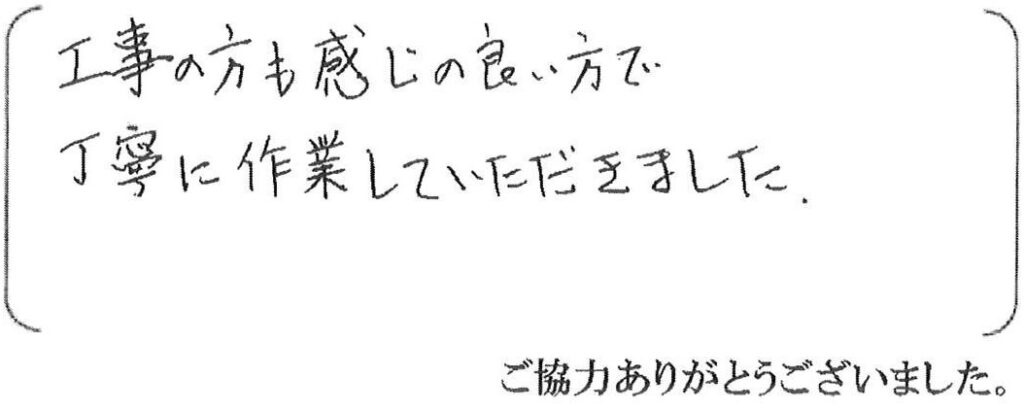 工事の方も感じの良い方で
丁寧に作業していただきました.
ご協力ありがとうございました。